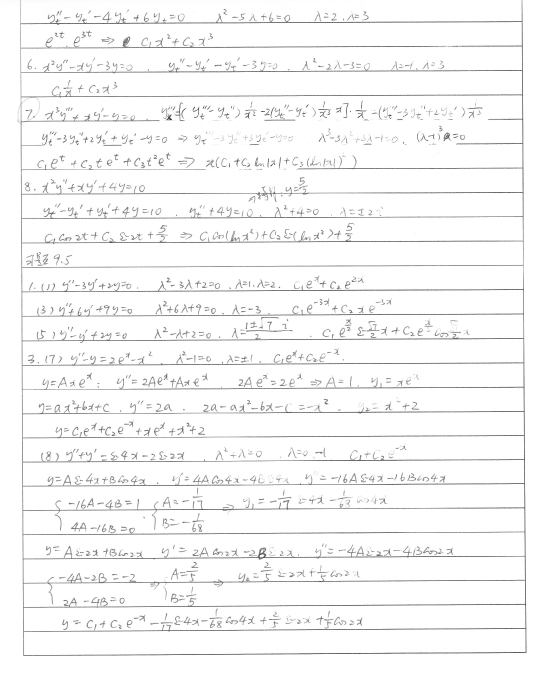 y_t'' - y_t' - 4y_t' + 6y_t = 0  λ² - 5λ + 6 = 0  λ = 2, λ = 3
e^{2t}, e^{3t} ⇒ C₁x² + C₂x³
6. x²y'' - xy' - 3y = 0  y_t'' - y_t' - y_t' - 3y = 0, λ² - 2λ - 3 = 0  λ = -1, λ = 3
C₁ 1/x + C₂x³
7. x³y''' + xy' - y = 0  y''' = [(y_t''' - y_t'') 1/x² - 2(y_t'' - y_t') 1/x³ x] · 1/x = (y_t''' - 3y_t'' + 2y_t') 1/x³
y_t''' - 3y_t'' + 2y_t' + y_t' - y = 0 ⇒ y_t''' - 3y_t'' + 3y_t' - y = 0  λ³ - 3λ² + 3λ - 1 = 0, (λ-1)³ = 0
C₁e^t + C₂te^t + C₃t²e^t ⇒ x(C₁ + C₂ln|x| + C₃(ln|x|)²)
8. x²y'' + xy' + 4y = 10  y = 5/2
y_t'' - y_t' + y_t' + 4y = 10, y_t'' + 4y = 10, λ² + 4 = 0, λ = ±2i
C₁cos2t + C₂sin2t + 5/2 ⇒ C₁cos(lnx²) + C₂sin(lnx²) + 5/2
习题 9.5
1. (1) y'' - 3y' + 2y = 0,  λ² - 3λ + 2 = 0, λ = 1, λ = 2, C₁e^x + C₂e^{2x}
(3) y'' + 6y' + 9y = 0  λ² + 6λ + 9 = 0, λ = -3  C₁e^{-3x} + C₂xe^{-3x}
(5) y'' - y' + 2y = 0  λ² - λ + 2 = 0, λ = (1±√7 i)/2, C₁e^{x/2} sin √7/2 x + C₂e^{x/2} cos √7/2 x
3. (7) y'' - y = 2e^x - x²  λ² - 1 = 0, λ = ±1, C₁e^x + C₂e^{-x}
y = Axe^x, y'' = 2Ae^x + Axe^x  2Ae^x = 2e^x ⇒ A = 1, y₁ = xe^x
y = ax² + bx + c, y'' = 2a, 2a - ax² - bx - c = -x², y₂ = x² + 2
y = C₁e^x + C₂e^{-x} + xe^x + x² + 2
(8) y'' + y' = sin4x - 2sin2x, λ² + λ = 0  λ = 0, -1  C₁ + C₂e^{-x}
y = Asin4x + Bcos4x, y' = 4Acos4x - 4Bsin4x, y'' = -16Asin4x - 16Bcos4x
{ -16A - 4B = 1  { A = -1/17  ⇒ y₁ = -1/17 sin4x - 1/68 cos4x
4A - 16B = 0  B = -1/68
y = Asin2x + Bcos2x, y' = 2Acos2x - 2Bsin2x, y'' = -4Asin2x - 4Bcos2x
{ -4A - 2B = -2 ⇒ { A = 2/5 ⇒ y₂ = 2/5 sin2x + 1/5 cos2x
2A - 4B = 0  B = 1/5
y = C₁ + C₂e^{-x} - 1/17 sin4x - 1/68 cos4x + 2/5 sin2x + 1/5 cos2x